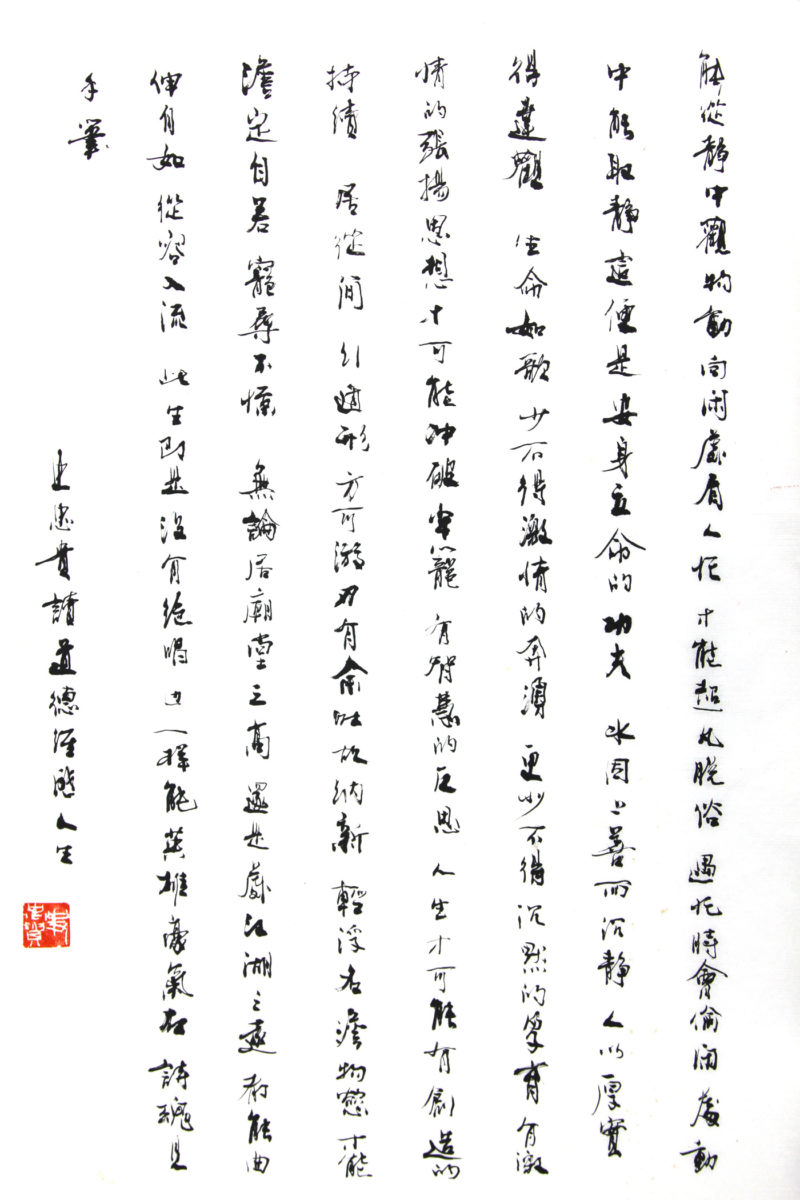 能從靜中觀物動向閑處看人忙才能超凡脫俗遇忙時會偷閑處動
中能取靜這便是安身立命的功夫水因上善而沉靜人以厚實
得達觀生命如歌少不得激情的奔湧更少不得沉默的孕育有激
情的張揚思想才可能沖破牢籠有智慧的反思人生才可能有創造的
持續居從簡引遁形方可游刃有余吐故納新輕浮名澹物慾才能
澹定自若寵辱不驚無論居廟堂之高還是處江湖之遠都能曲
伸自如從容入流此生即是沒有絕唱也一樣能英雄豪氣在詩魂見
手筆
史忠貴請道德經照人生